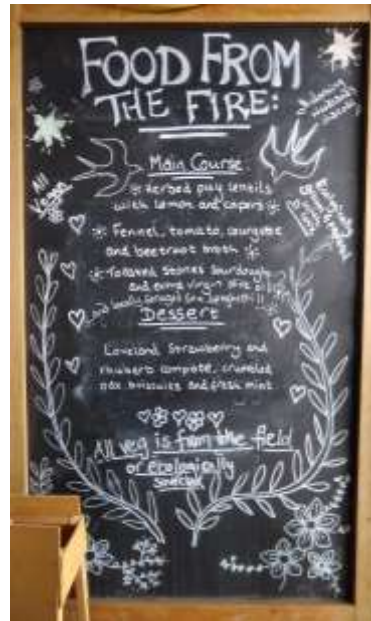 FOOD FROM
THE FIRE:
Main Course
All
Vegan
Herbed puy lentils
with lemon and capers
Fennel, tomato, courgette
and beetroot broth
Toasted Stones Sourdough
and extra virgin olive oil
and locally foraged sea
Dessert
Loveland Strawberry and
rhubarb compote, crumbled
oat biscuits and fresh mint
All veg is from the field
or ecologically